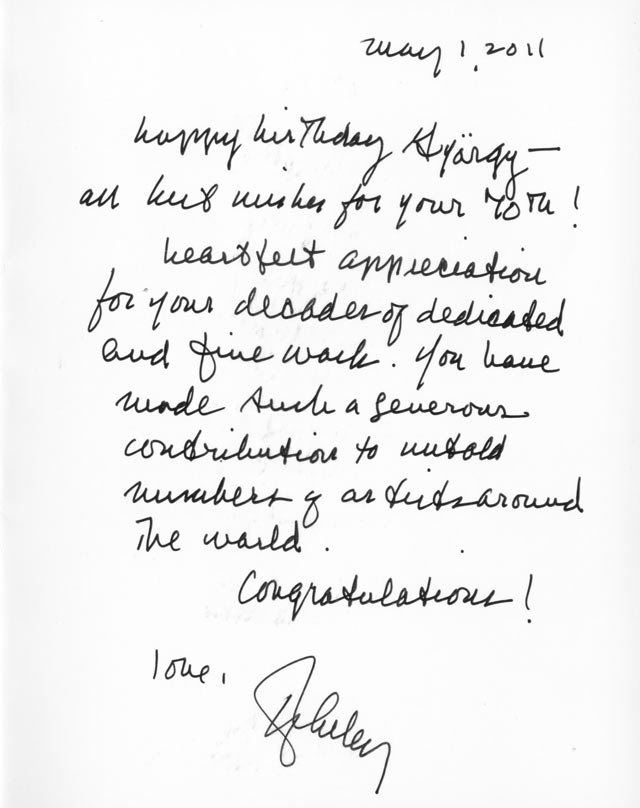 May 1, 2011
happy birthday György —
all best wishes for your 70th!
heartfelt appreciation
for your decades of dedicated
and fine work. You have
made such a generous
contribution to untold
numbers of artists around
the world.
Congratulations!
love,